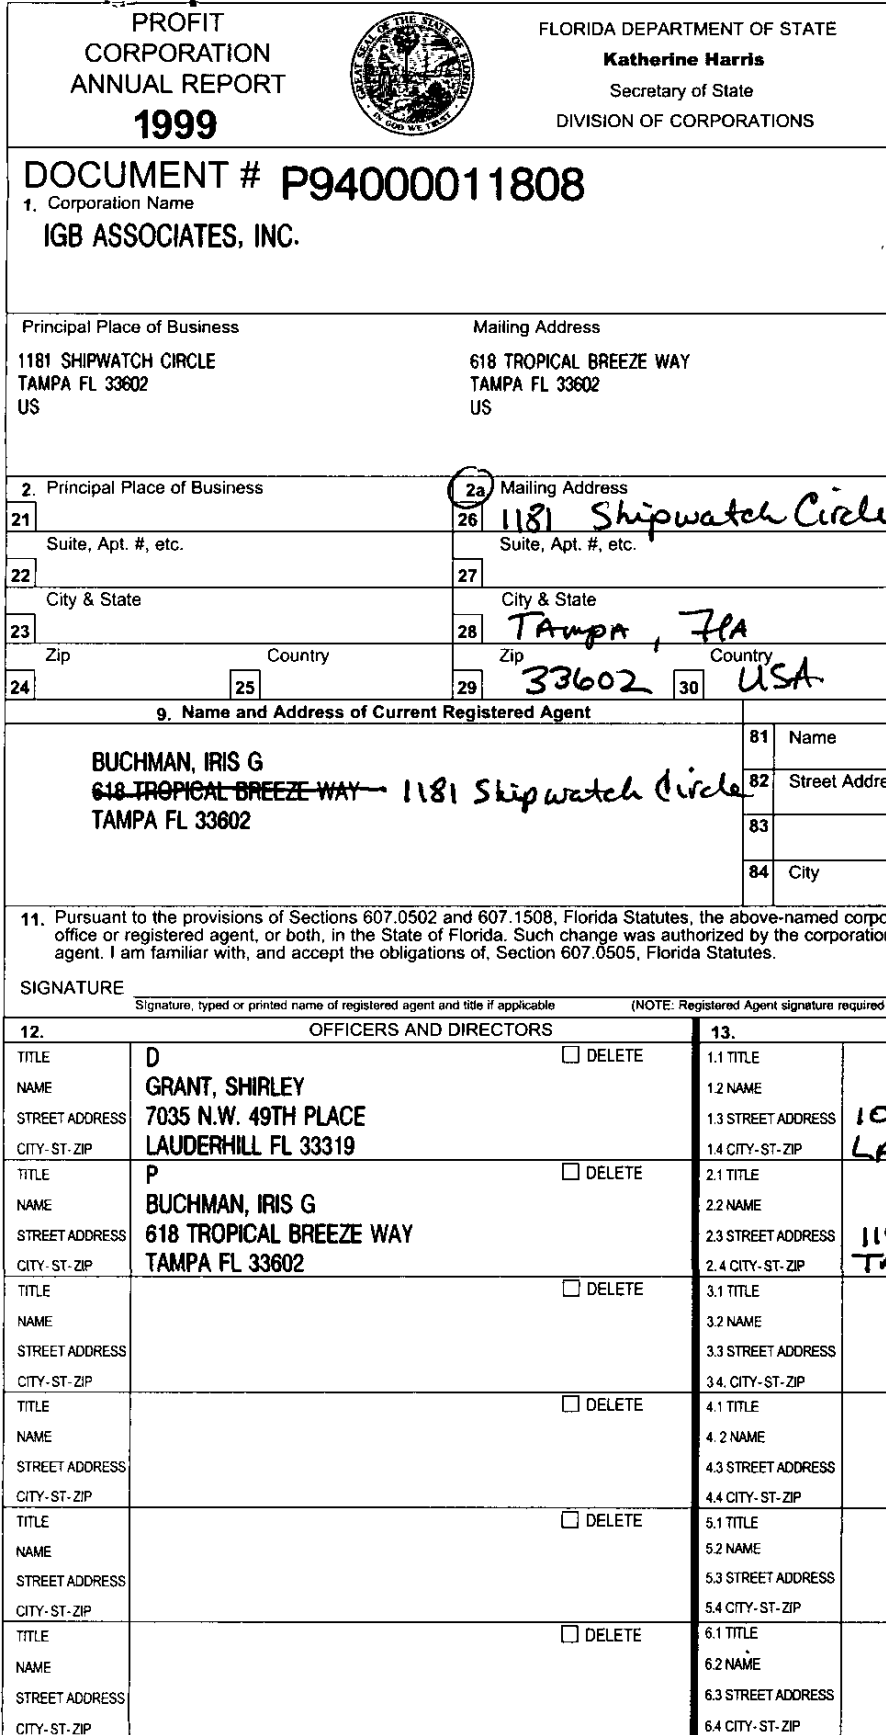 PROFIT
CORPORATION
ANNUAL REPORT
1999
GREAT SEAL OF THE STATE OF FLORIDA
IN GOD WE TRUST
FLORIDA DEPARTMENT OF STATE
Katherine Harris
Secretary of State
DIVISION OF CORPORATIONS
DOCUMENT # P94000011808
1. Corporation Name
IGB ASSOCIATES, INC.
Principal Place of Business
1181 SHIPWATCH CIRCLE
TAMPA FL 33602
US
Mailing Address
618 TROPICAL BREEZE WAY
TAMPA FL 33602
US
2. Principal Place of Business
21
Suite, Apt. #, etc.
22
City & State
23
Zip Country
24 25
2a Mailing Address
26 1181 Shipwatch Circle
Suite, Apt. #, etc.
27
City & State
28 TAmpA, FlA
Zip Country
29 33602 30 USA
9. Name and Address of Current Registered Agent
BUCHMAN, IRIS G
618 TROPICAL BREEZE WAY 1181 Shipwatch Circle
TAMPA FL 33602
81 Name
82 Street Addre
83
84 City
11. Pursuant to the provisions of Sections 607.0502 and 607.1508, Florida Statutes, the above-named corpo
office or registered agent, or both, in the State of Florida. Such change was authorized by the corporatio
agent. I am familiar with, and accept the obligations of, Section 607.0505, Florida Statutes.
SIGNATURE
Signature, typed or printed name of registered agent and title if applicable (NOTE: Registered Agent signature required
12. OFFICERS AND DIRECTORS
TITLE D DELETE
NAME GRANT, SHIRLEY
STREET ADDRESS 7035 N.W. 49TH PLACE
CITY-ST-ZIP LAUDERHILL FL 33319
TITLE P DELETE
NAME BUCHMAN, IRIS G
STREET ADDRESS 618 TROPICAL BREEZE WAY
CITY-ST-ZIP TAMPA FL 33602
TITLE DELETE
NAME
STREET ADDRESS
CITY-ST-ZIP
TITLE DELETE
NAME
STREET ADDRESS
CITY-ST-ZIP
TITLE DELETE
NAME
STREET ADDRESS
CITY-ST-ZIP
TITLE DELETE
NAME
STREET ADDRESS
CITY-ST-ZIP
13.
1.1 TITLE
1.2 NAME
1.3 STREET ADDRESS
1.4 CITY-ST-ZIP
2.1 TITLE
2.2 NAME
2.3 STREET ADDRESS
2.4 CITY-ST-ZIP
3.1 TITLE
3.2 NAME
3.3 STREET ADDRESS
34. CITY-ST-ZIP
4.1 TITLE
4.2 NAME
4.3 STREET ADDRESS
4.4 CITY-ST-ZIP
5.1 TITLE
5.2 NAME
5.3 STREET ADDRESS
5.4 CITY-ST-ZIP
6.1 TITLE
6.2 NAME
6.3 STREET ADDRESS
6.4 CITY-ST-ZIP